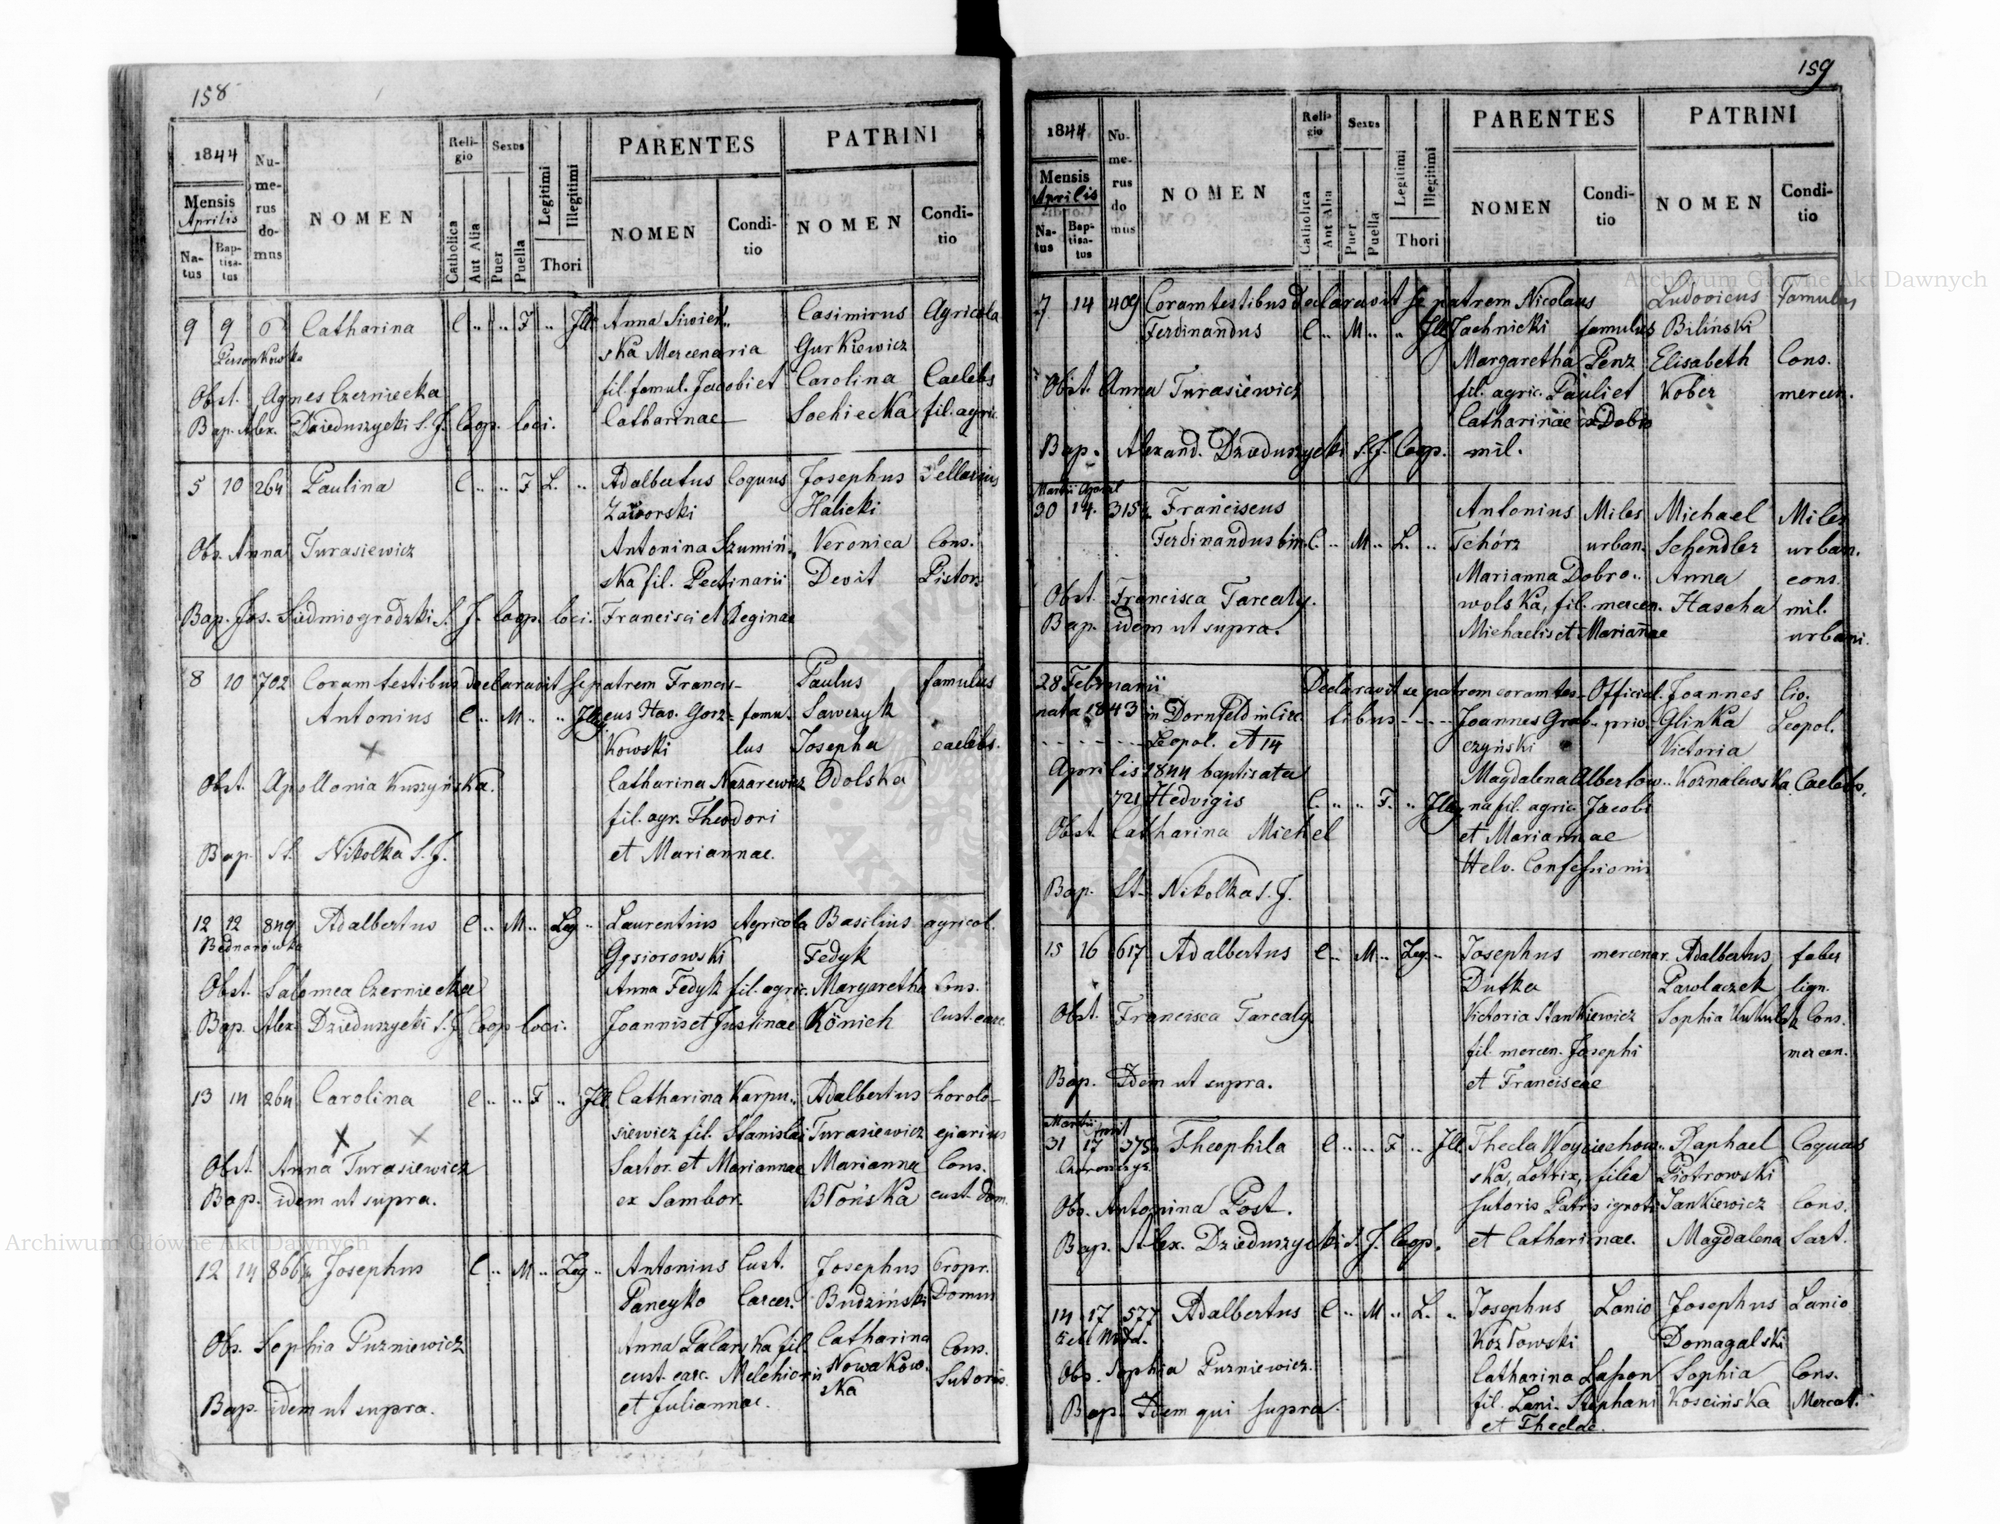 158
1844
Mensis
Aprilis
Na-
tus
Bap-
tisa-
tus
Nu-
me-
rus
do-
mus
NOMEN
Reli-
gio
Catholica
Aut Alia
Sexus
Puer
Puella
Legitimi
Illegitimi
Thori
PARENTES
NOMEN
Condi-
tio
PATRINI
NOMEN
Condi-
tio
9 9 6 Catharina C „ „ F „ Ill. Anna Siwier„ Casimirus Agricola
Personkowka ska Mercenaria Gurkiewicz
Obst. Agnes Czerniecka fil. famul. Jacobi et Carolina Caelebs
Bap. Alex. Dzieduszycki S. J. Coop. loci. Catharinae Sochiecka fil. agric.
5 10 264 Paulina C „ „ F L. „ Adalbertus Coquus Josephus Sellarius
Zaworski Halicki
Obs. Anna Turasiewicz Antonina Szumiń„ Veronica Cons.
ska fil. Pectinarii Devit Pistor.
Bap. Jos. Siedmiogrodzki S. J. Coop. loci. Francisci et Reginae
8 10 702 Coram testibus declaravit se patrem Francis- Paulus famulus
Antonius C „ M „ „ Ill. cus Hav. Gorz- famu- Sawczyk
Kowski lus Josepha caelebs.
Obst. Apollonia Kuszyńska. Catharina Nazarewicz Odolska
fil. agr. Theodori
Bap. St. Nikolka S. J. et Mariannae.
12 12 849 Adalbertus C „ M „ Leg „ Laurentius Agricola Basilius agricol.
Bednarówka Gąsiorowski Fedyk
Obst. Salomea Czerniecka Anna Fedyk fil. agric. Margaretha Cons.
Bap. Alex. Dzieduszycki S. J. Coop loci. Joannis et Justinae Könich Cust. carc.
13 14 264 Carolina C „ „ F „ Ill. Catharina Karpu„ Adalbertus horolo-
siewicz fil. Stanislai Turasiewicz giarius
Obst. Anna Turasiewicz Sartor. et Mariannae Marianna Cons.
Bap. idem ut supra. ex Sambor. Błońska cust. dom.
12 14 866 Josephus C „ M „ Leg „ Antonius Cust. Josephus Propr.
Paneyko Carcer. Budziński Domus
Obs. Sophia Puzniewicz Anna Palarska fil. Catharina Cons.
cust. carc. Melchioris Nowakow- Sutoris
Bap. idem ut supra. et Juliannae. ska
159
1844
Mensis
Aprilis
Na-
tus
Bap-
tisa-
tus
Nu-
me-
rus
do
mus
NOMEN
Reli-
gio
Catholica
Aut Alia
Sexus
Puer
Puella
Legitimi
Illegitimi
Thori
PARENTES
NOMEN
Condi-
tio
PATRINI
NOMEN
Condi-
tio
7 14 409 Coram testibus declaravit se patrem Nicolaus Ludovicus famulus
Ferdinandus C „ M „ „ Ill. Jachnicki famulus Biliński
Margaretha Penz Elisabeth Cons.
Obst. Anna Turasiewicz fil. agric. Pauli et Kober mercen.
Catharinae ex Dobro
Bap. Alexand. Dzieduszycki S. J. Coop. mil.
Martii April
30 14. 315 Franciscus Antonius Miles Michael Miles
Ferdinandus bin. C. „ M „ L. „ Tchórz urban. Schendler urban.
Marianna Dobro„ Anna cons.
Obst. Francisca Tarcaly. wolska, fil. mercen. Hascha mil.
Bap. idem ut supra. Michaelis et Mariannae urbani.
28 Februarii Declaravit se patrem coram tes- Official. Joannes Civ.
nata 1843 in Dornfeld in Circ. tibus Joannes Grab- priv. Glinka Leopol.
Leopol. et 14 czyński Victoria
Aprilis 1844 baptisata Magdalena Albertow„ Koznalewska Caelebs.
721 Hedvigis C. „ „ F. „ Ill. na fil. agric. Jacobi
Obst. Catharina Michel et Mariannae
Helv. Confessionis
Bap. St. Nikolka S. J.
15 16 617 Adalbertus C „ M „ Leg „ Josephus mercenar. Adalbertus faber
Dutka Pawlaczek lign.
Obst. Francisca Tarcaly Victoria Stankiewicz Sophia Kukulsk Cons.
fil. mercen. Josephi mercen.
Bap. Idem ut supra. et Franciscae
Martii April
31 17 375 Theophila C „ „ F „ Ill. Thecla Woyciechow„ Raphael Coquus
ska, Lotrix, filia Piotrowski
Obs. Antonina Post. Sutoris Patris ignoti Jankiewicz Cons.
Bap. Alex. Dzieduszycki S. J. Coop. et Catharinae. Magdalena Sart.
14 17 577 Adalbertus C „ M „ L. „ Josephus Lanio Josephus Lanio
Kozłowski Domagalski
Obs. Sophia Puzniewicz. Catharina Lapon Sophia Cons.
fil. Lani. Stephani Kościńska Mercat.
Bap. Idem qui supra. et Theclae.
Archiwum Główne Akt Dawnych
Archiwum Główne Akt Dawnych